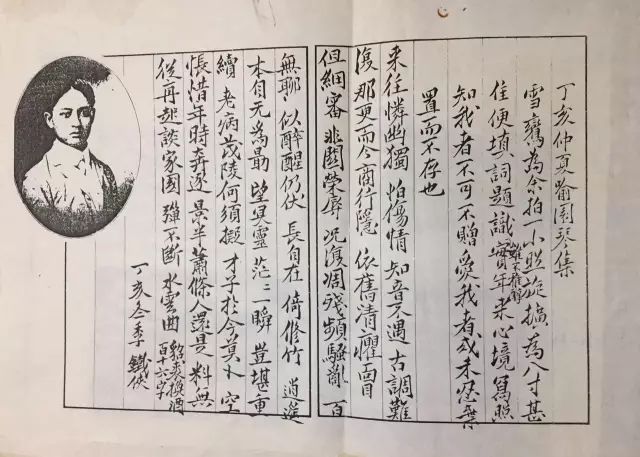 丁亥仲夏踰園琴集
雪鶱為余拍一小照旋擴為八寸甚
佳便填詞題識實年來心境寫照
雖不獲辭
知我者不可不贈愛我者或未忍棄
置而不存也
来往憐幽獨 怕傷情 知音不遇 古調難
復 那更而今商行隱 依舊清臞面目
但細審 非關榮辱 況復凋殘頻騷亂 百
無聊 似醉醒仍伏 長自在 倚修竹 逍遥
本自无為勖 望冥靈 茫二一瞬 豈堪重
續 老病茂陵何須擬 才子於今莫卜 空
悵惜年時奔逐 景半蕭條人還是 料無
從再起談家國 彈不斷 水雲曲
貂裘換酒
百十六字
丁亥冬季 鐵俠